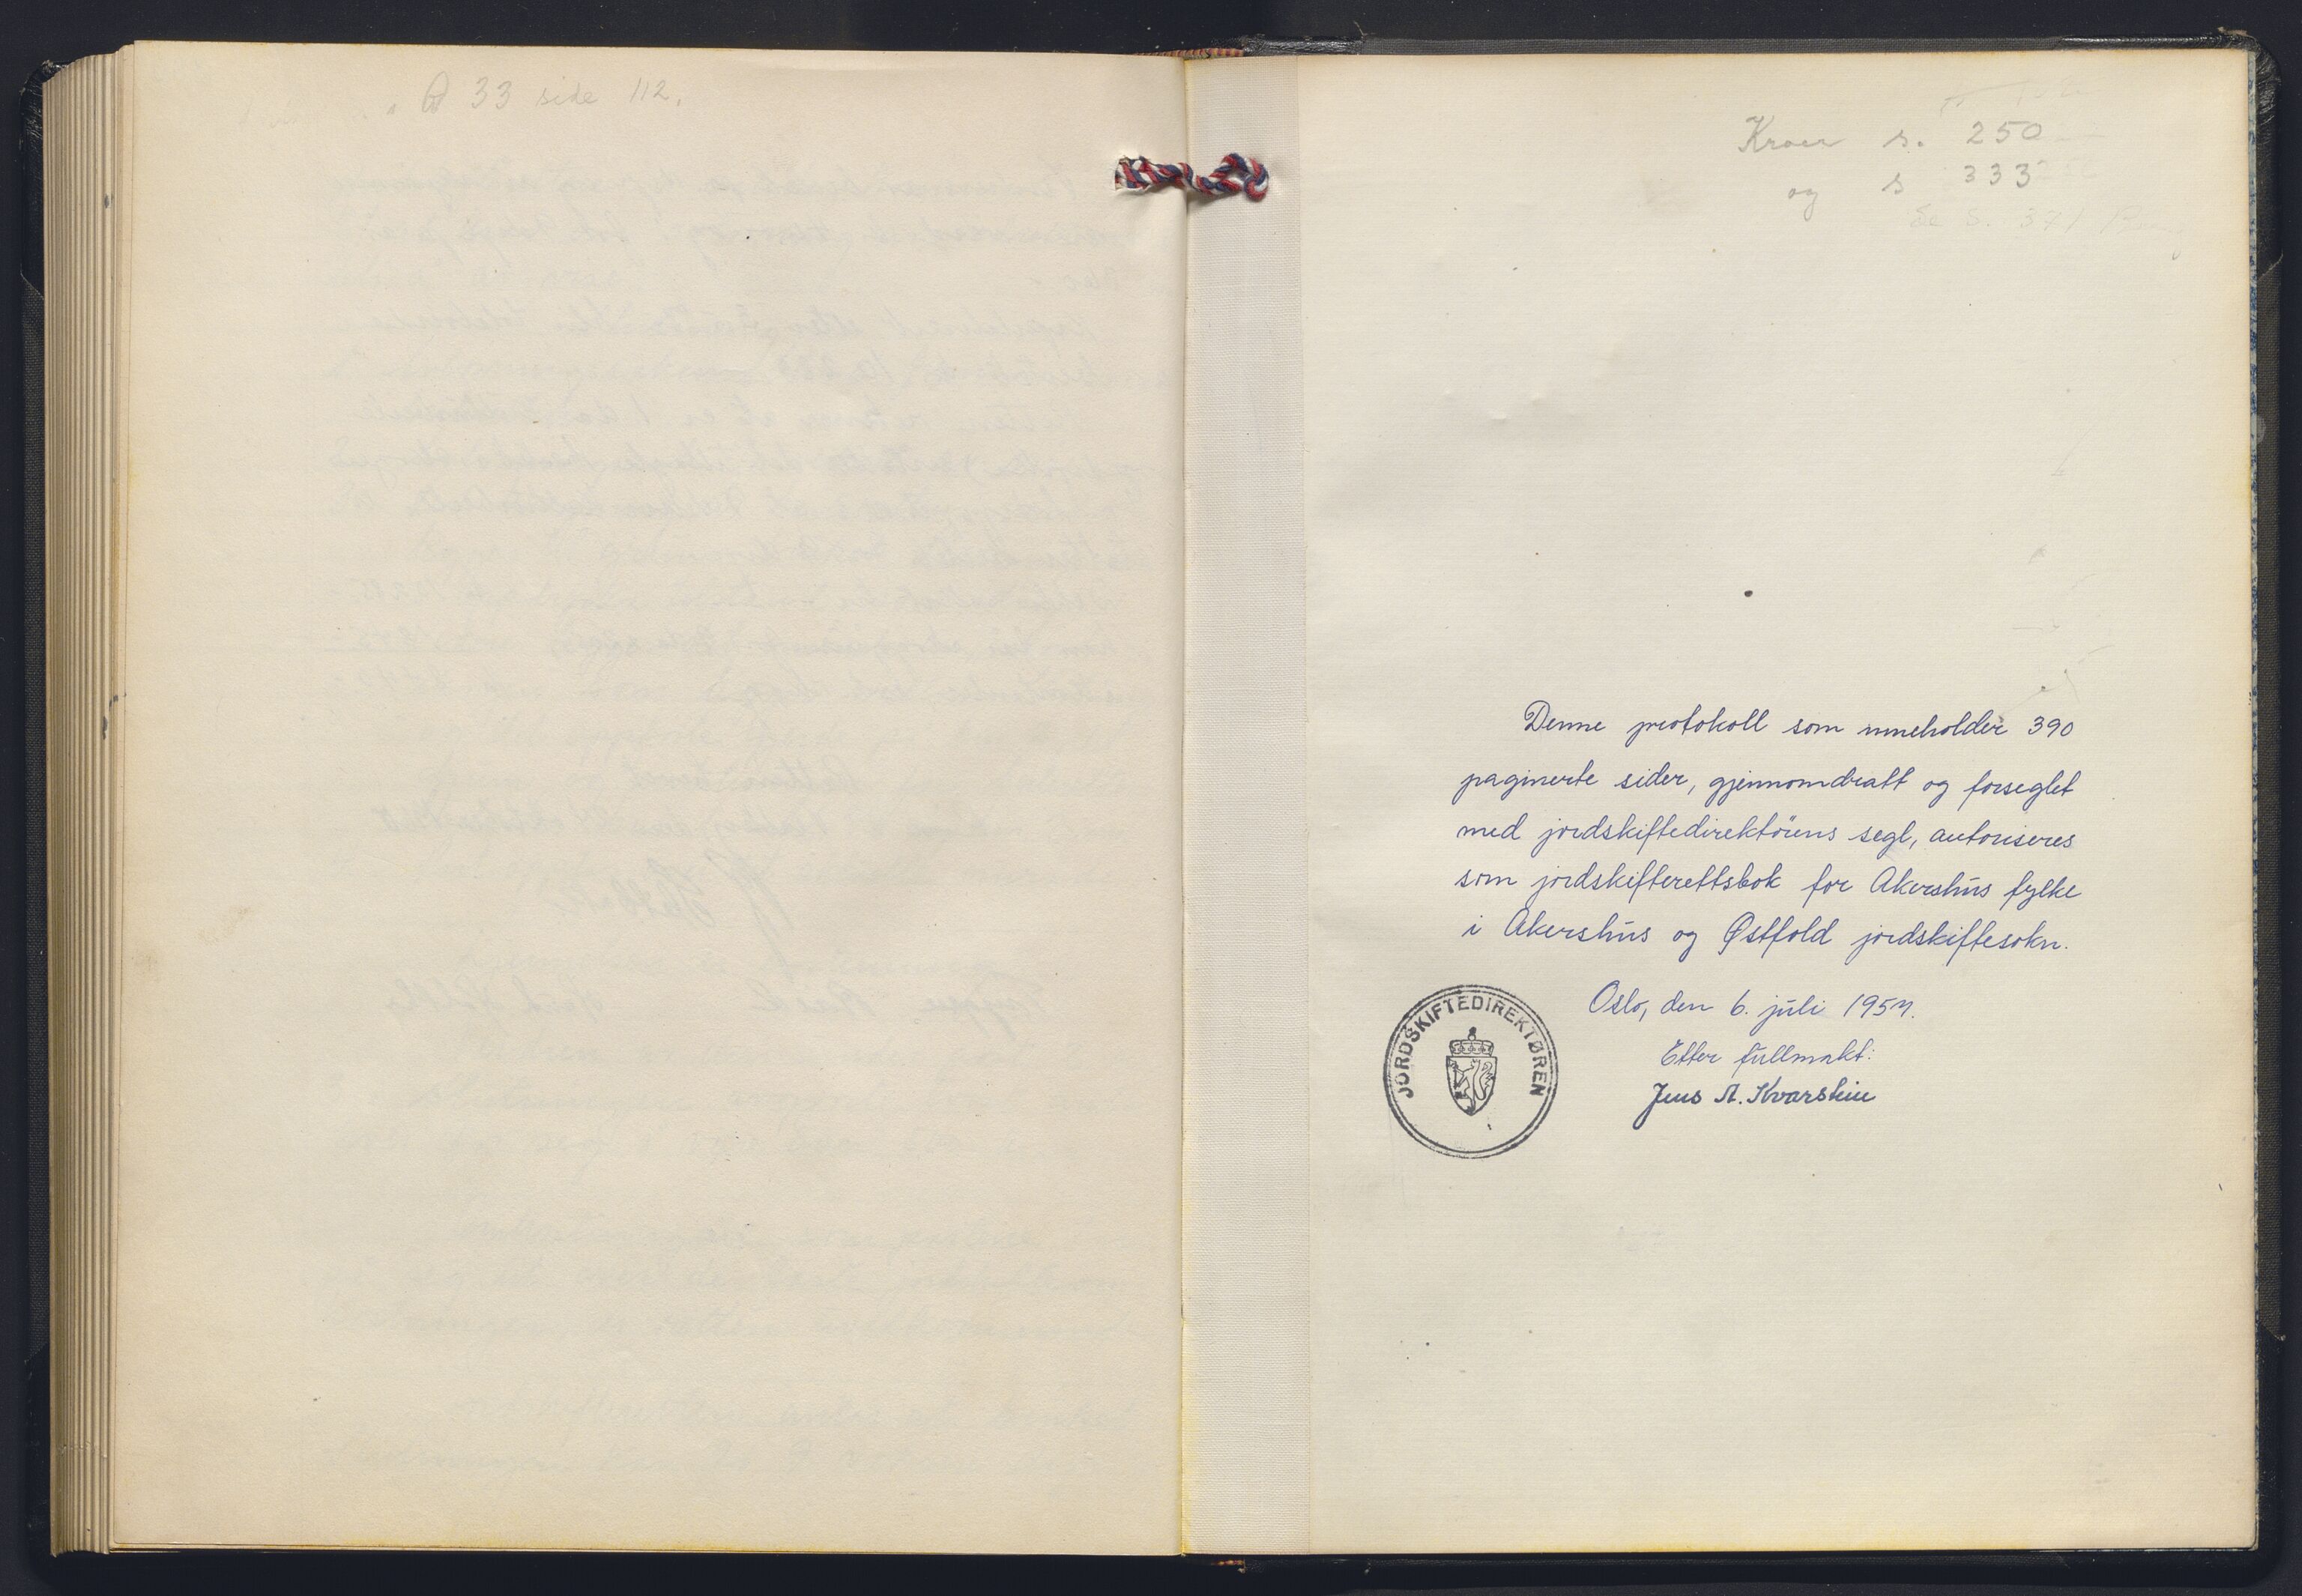 33 side 112.
Kroer s. 250
og s 333
Denne protokoll som inneholder 390
paginerte sider, gjennomdratt og forseglet
med jordskiftedirektörens segl, autoriseres
som jordskifterettsbok for Akershus fylke
i Akershus og Østfold jordskiftesokn.
Oslo, den 6. juli 1957.
Etter fullmakt:
Jens A. Kvarstein
JORDSKIFTEDIREKTØREN